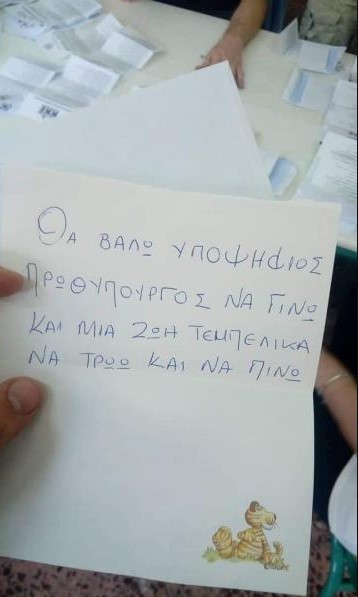 ΘΑ ΒΑΛΩ ΥΠΟΨΗΦΙΟΣ
ΠΡΩΘΥΠΟΥΡΓΟΣ ΝΑ ΓΙΝΩ
ΚΑΙ ΜΙΑ ΖΩΗ ΤΕΜΠΕΛΙΚΑ
ΝΑ ΤΡΩΩ ΚΑΙ ΝΑ ΠΙΝΩ